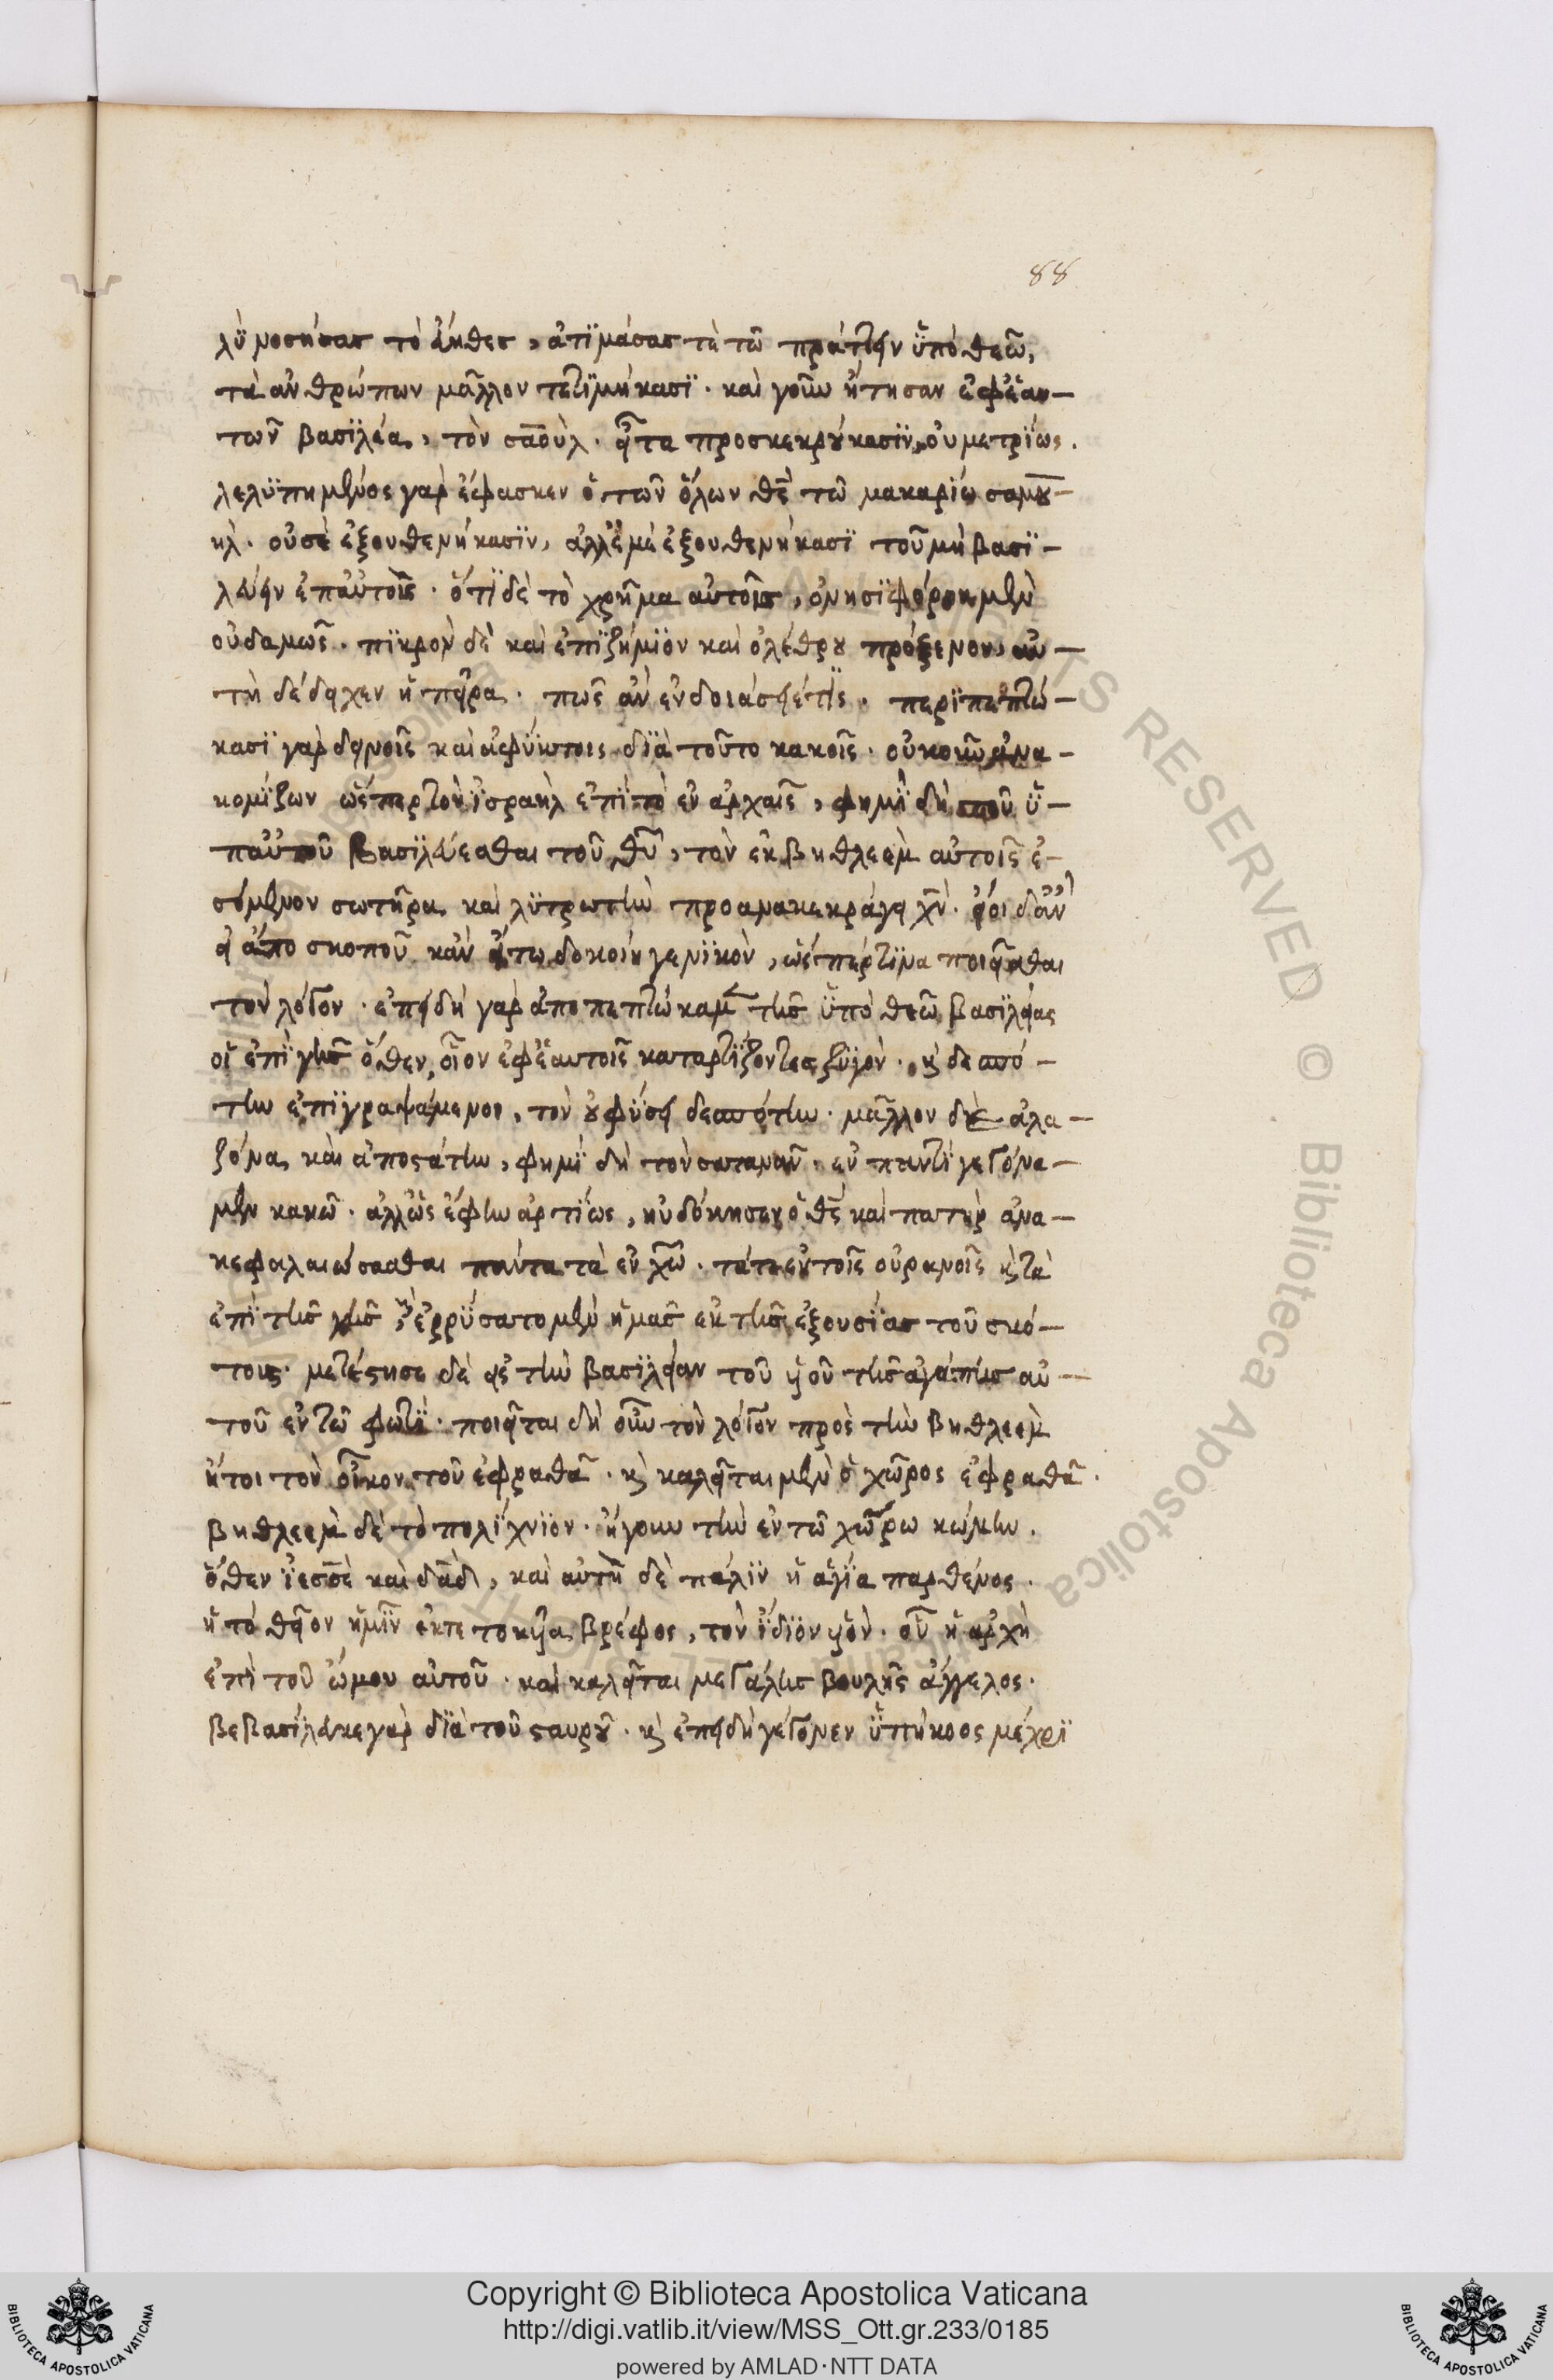 88
λὺ νοσήσας τὸ ἔηθες, ἀτϊμάσας τὲ τῶ πράττειν ὑπὸ θεῶ,
τὰ ἀνθρώπων μᾶλλον τετϊμήκασϊ. καὶ γοῦν ἤτησαν ἐφ ἑαυ-
τῶν βασϊλέα, τὸν σαοὺλ. εἶτα προσκεκρούκασϊν, οὐ μετρΐως.
λελϋπημένος γὰρ ἔφασκεν ὁ τῶν ὅλων θς τῶ μακαρίω σαμου-
ηλ. οὐ σὲ ἐξουθενήκασϊν, ἀλλ ἐμὲ ἐξουθενήκασϊ τοῦ μὴ βασϊ-
λεύειν ἐπ αὐτοῖς. ὅτϊ δὲ τὸ χρῆμα αὐτοῖς, ὀνησϊφόρον μὲν
οὐδαμῶς. πϊκρὸν δὲ καὶ ἐπϊζήμϊον καὶ ὀλέθρου πρόξενον, αὐ-
τὴ δέδειχεν ἡ πεῖρα. πῶς ἂν ἐνδοιάσειέ τϊς. περϊπεπτώ-
κασϊ γὰρ δεινοῖς καὶ ἀφύκτοις διὰ τοῦτο κακοῖς. οὐκοῦν ἀνα-
κομΐζων ὥσπερ τὸν ϊσραὴλ ἐπϊ τὸ ἐν ἀρχαῖς, φημϊ δὴ τοῦ ὑ-
π αὐτοῦ βασϊλεύεσθαι τοῦ θυ, τὸν ἐκ βηθλεὲμ αὐτοῖς ἐ-
σόμενον σωτῆρα καὶ λϋτρωτὴν προανακεκράγει χν. εἴοι δ ἂν
εἰ ἀπο σκοποῦ κἂν εἴτω δοκοίη γενϊκὸν, ὥσπέρ τϊνα ποιεῖσθαι
τὸν λόγον. ἐπειδὴ γὰρ ἀποπεπτώκαμεν τῆς ὑπὸ θεῶ βασϊλείας
οἱ ἐπϊ γῆς ὅθεν, οἷον ἐφ ἑαυτοῖς καταρτΐζοντες ζϋγὸν. καὶ δεσπό-
την ἐπϊγραψάμενοι, τὸν οὐ φύσει δεσπότην. μᾶλλον δὲ ἀλα-
ζόνα καὶ ἀποστάτην, φημϊ δὴ τὸν σατανᾶν. ἐν παντϊ γεγόνα-
μεν κακῶ. ἀλλ ὡς ἔφην ἀρτΐως, ηὐδόκησεν ὁ θς καὶ πατὴρ ἀνα-
κεφαλαιώσασθαι πάντα τὰ ἐν χω. τά τε ἐν τοῖς οὐρανοῖς καὶ τὰ
ἐπϊ τῆς γῆς, καὶ ἐρρΰσατο μὲν ἡμᾶς ἐκ τῆς ἐξουσΐας τοῦ σκό-
τους. μετέστησε δὲ εἰς τὴν βασϊλείαν τοῦ υἱοῦ τῆς ἀγάπης αὐ-
τοῦ ἐν τῶ φωτϊ. ποιεῖται δὴ οὖν τὸν λόγον πρὸς τὴν βηθλεὲμ
ἤτοι τὸν οἶκον τοῦ ἐφραθᾶ. καὶ καλεῖται μὲν ὁ χῶρος ἐφραθᾶ.
βηθλεὲμ δὲ τὸ πολΐχνϊον. ἤγουν τὴν ἐν τῶ χώρω κώμην.
ὅθεν ϊεσσὲ καὶ δαδ, καὶ αὐτὴ δὲ πάλϊν ἡ ἁγΐα παρθένος.
ἡ τὸ θεῖον ἡμῖν ἐκτετοκυῖα βρέφος, τὸν ἴδϊον υἱὸν. οὗ ἡ ἀρχὴ
ἐπὶ τοῦ ὤμου αὐτοῦ. καὶ καλεῖται μεγάλης βουλῆς ἄγγελος.
βεβασΐλευκε γὰρ διὰ τοῦ σταυροῦ. καὶ ἐπειδὴ γέγονεν ὑπήκοος μέχρϊ
Copyright © Biblioteca Apostolica Vaticana
http://digi.vatlib.it/view/MSS_Ott.gr.233/0185
powered by AMLAD·NTT DATA
BIBLIOTECA APOSTOLICA VATICANA
BIBLIOTECA APOSTOLICA VATICANA